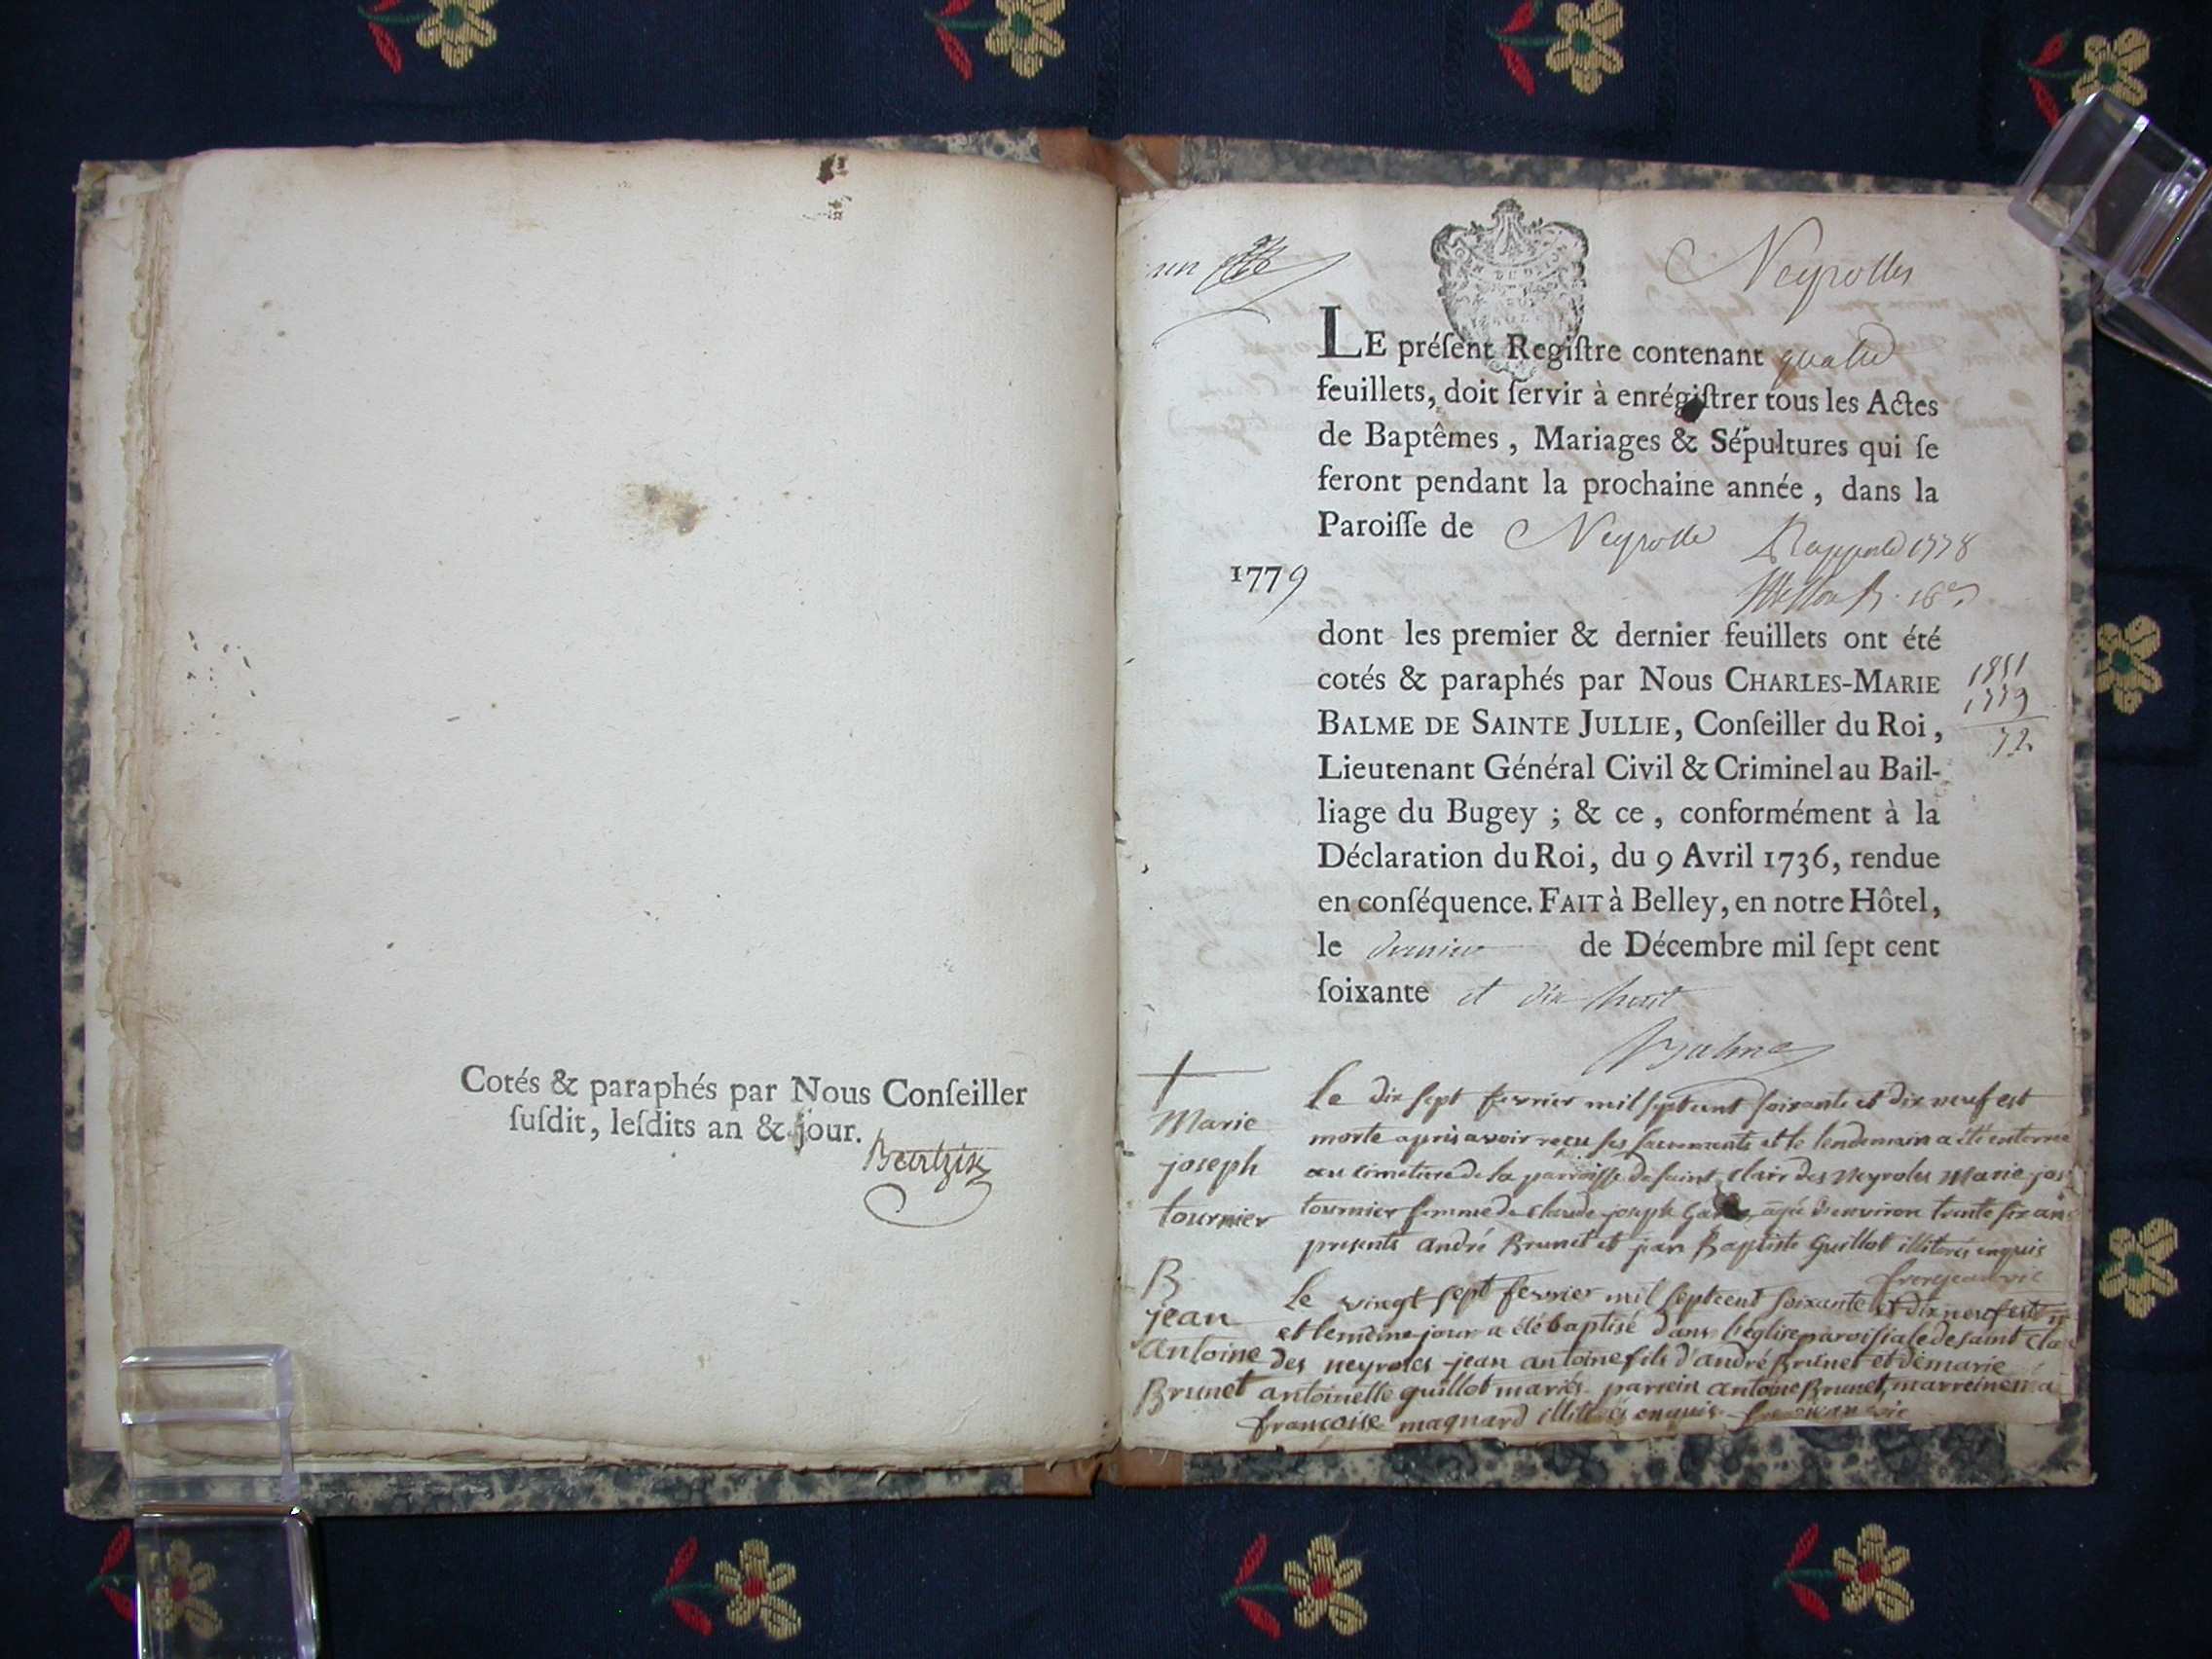 Cotés & paraphés par Nous Conſeiller
ſuſdit, leſdits an & jour.
un
Neyrolles
LE préſent Regiſtre contenant quatre
feuillets, doit ſervir à enrégiſtrer tous les Actes
de Baptêmes, Mariages & Sépultures qui ſe
feront pendant la prochaine année, dans la
Paroiſſe de Neyrolle Rapporté 1778
1779
dont les premier & dernier feuillets ont été
cotés & paraphés par Nous CHARLES-MARIE
BALME DE SAINTE JULLIE, Conſeiller du Roi,
Lieutenant Général Civil & Criminel au Bail-
liage du Bugey ; & ce, conformément à la
Déclaration du Roi, du 9 Avril 1736, rendue
en conſéquence. FAIT à Belley, en notre Hôtel,
le dernier de Décembre mil ſept cent
ſoixante et dix huit
1851
1779
72
Balme
Marie
joseph
tournier
Le dix sept fevrier mil sept cent soixante et dix neuf est
morte apris avoir reçu ses sacrements et le lendemain a été enterrée
au cimetiere de la parroisse de saint clair des Neyroles Marie jos
tournier femme de claude joseph agée d'environ trente six ans
presents andré Brunet et jean Baptiste Guillot illiterés enquis
frerejean vic
B
jean
Antoine
Brunet
Le vingt sept fevrier mil septcent soixante et dix neuf est n
et le même jour a été baptisé dans l'eglise paroisiale de saint cla
des neyroles jean antoine fils d'andré Brunet et de marie
antoinette guillot mariés parrein antoine Brunet, marreine
françoise magnard illiterés enquis frerejean vic